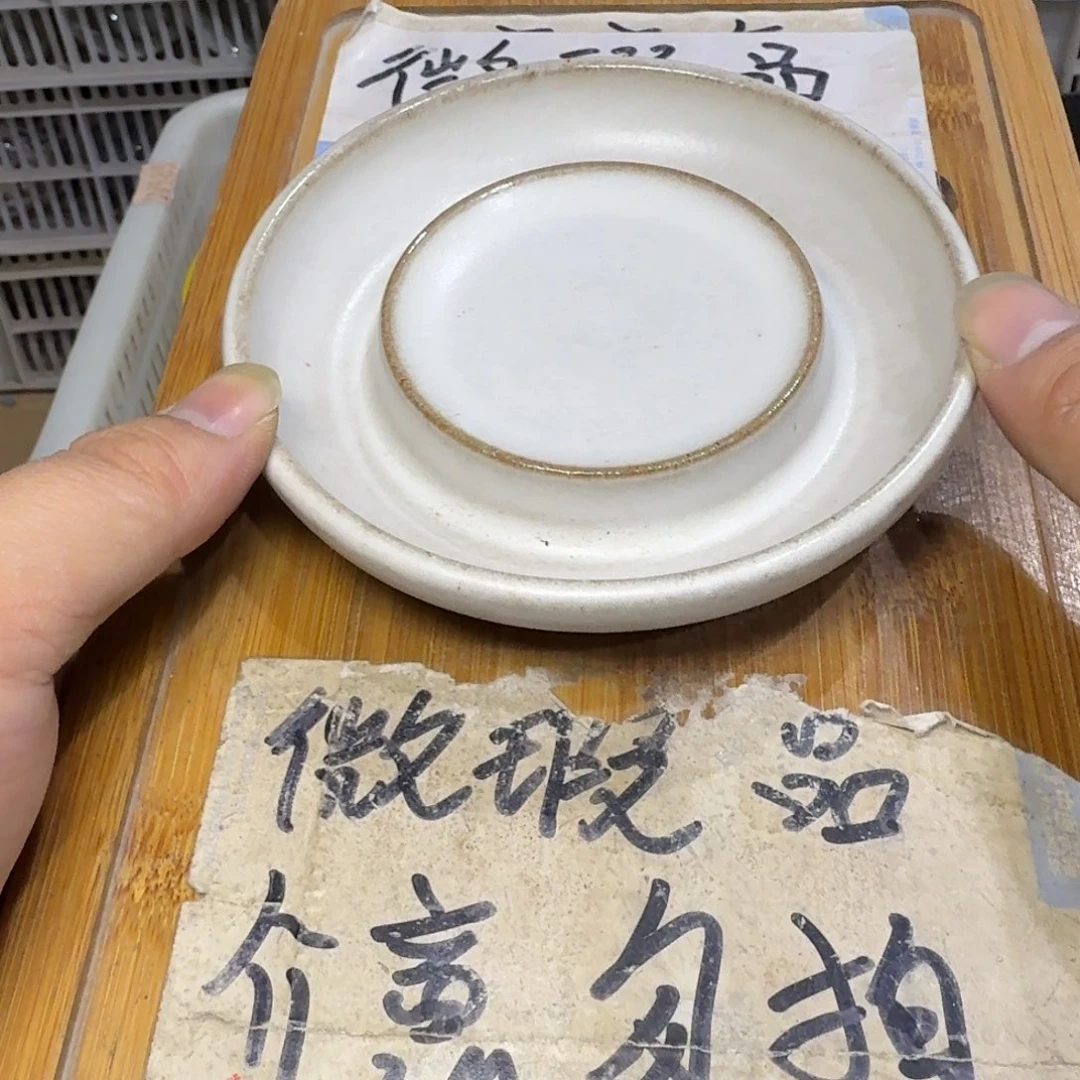 微瑕品
微瑕品
介意勿拍